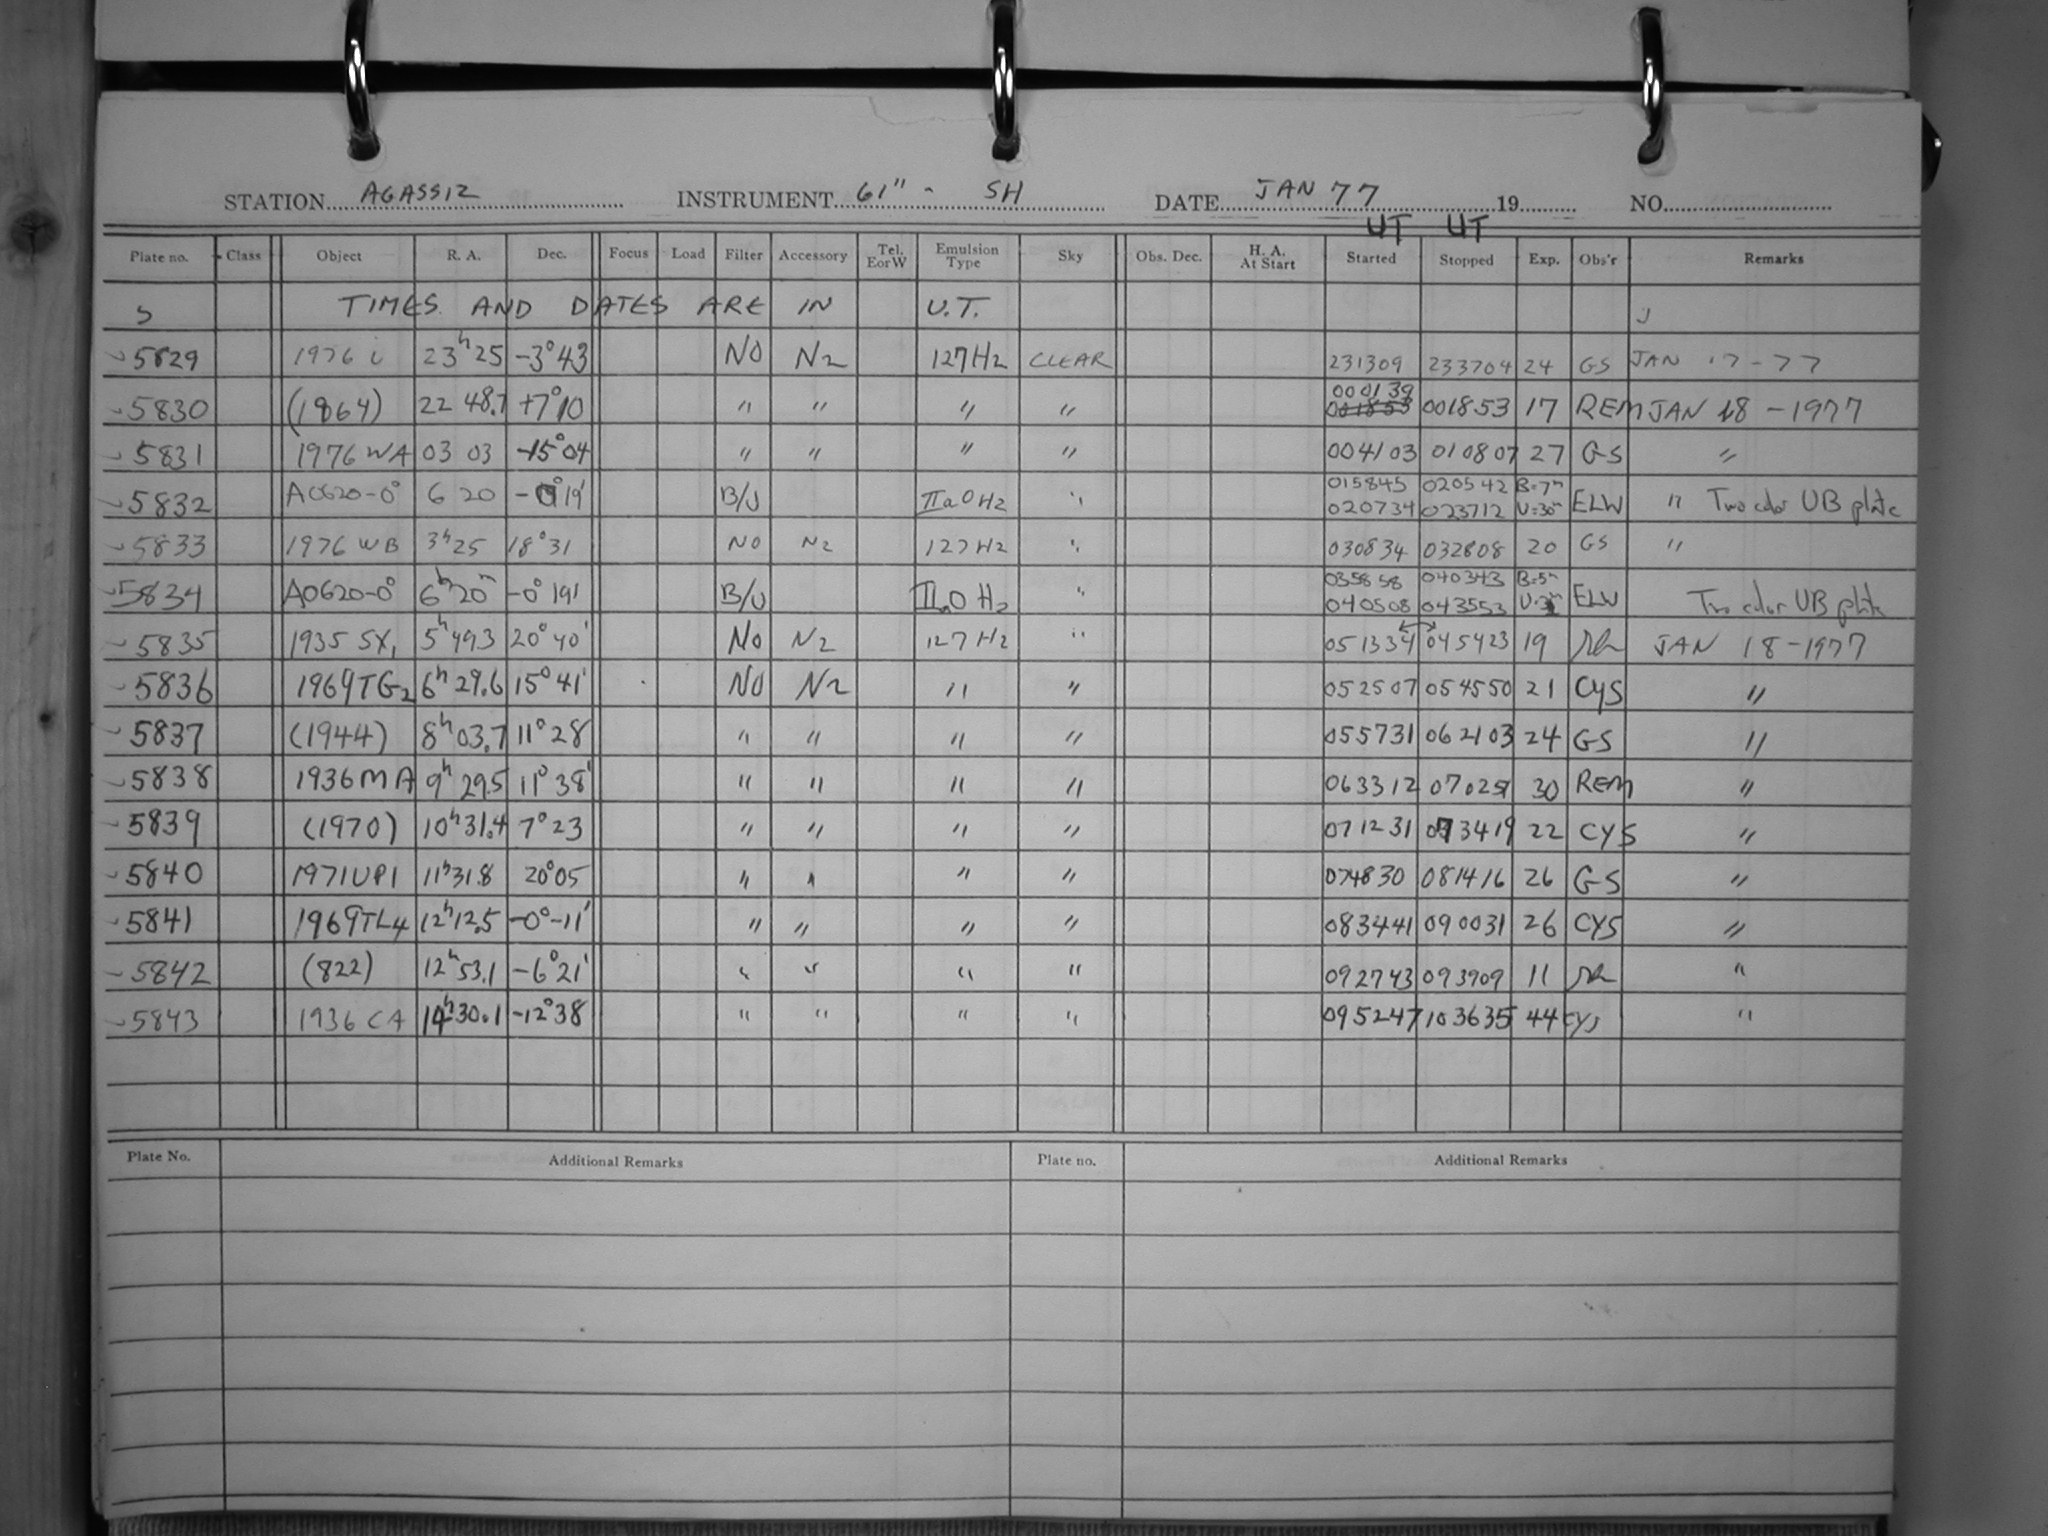 STATION AGASSIZ INSTRUMENT 61" - SH DATE JAN 77 19 NO.
UT UT
Plate no. Class Object R. A. Dec. Focus Load Filter Accessory Tel. E or W Emulsion Type Sky Obs. Dec. H. A. At Start Started Stopped Exp. Obs'r Remarks
TIMES AND DATES ARE IN U.T.
5829 1976 i 23h 25 -3°43 NO N2 127Hz CLEAR 231309 233704 24 GS JAN 17-77
5830 (1864) 22 48.7 +7°10 " " " " 000139 001853 001853 17 REM JAN 18-1977
5831 1976 WA 03 03 -15°04 " " " " 004103 010807 27 GS "
5832 A0620-0° 6 20 -0°19' B/U IIaOH2 " 015845 020542 B=7m ELW " Two color UB plate
020734 023712 U=30m
5833 1976 WB 3h25 18°31 NO N2 127H2 " 030834 032808 20 GS "
5834 A0620-0° 6h20m -0°19' B/U IIaO H2 " 035858 040343 B=5m ELW Two color UB plate
040508 043553
5835 1935 SX1 5h493 20°40' NO N2 127H2 " 051334 045423 19 JAN 18-1977
5836 1969TG2 6h29.6 15°41' NO N2 " " 052507 054550 21 CYS "
5837 (1944) 8h03.7 11°28 " " " " 055731 062103 24 GS "
5838 1936MA 9h 29.5 11°38' " " " " 063312 07025 30 REM "
5839 (1970) 10h31.4 7°23 " " " " 071231 073419 22 CYS "
5840 1971UP1 11h31.8 20°05 " " " " 074830 081416 26 GS "
5841 1969TL4 12h12.5 -0°-11' " " " " 083441 090031 26 CYS "
5842 (822) 12h53.1 -6°21' " " " " 092743 093909 11 "
5843 1936 CA 14h30.1 -12°38 " " " " 095247 103635 44 CYS "
Plate No. Additional Remarks Plate no. Additional Remarks